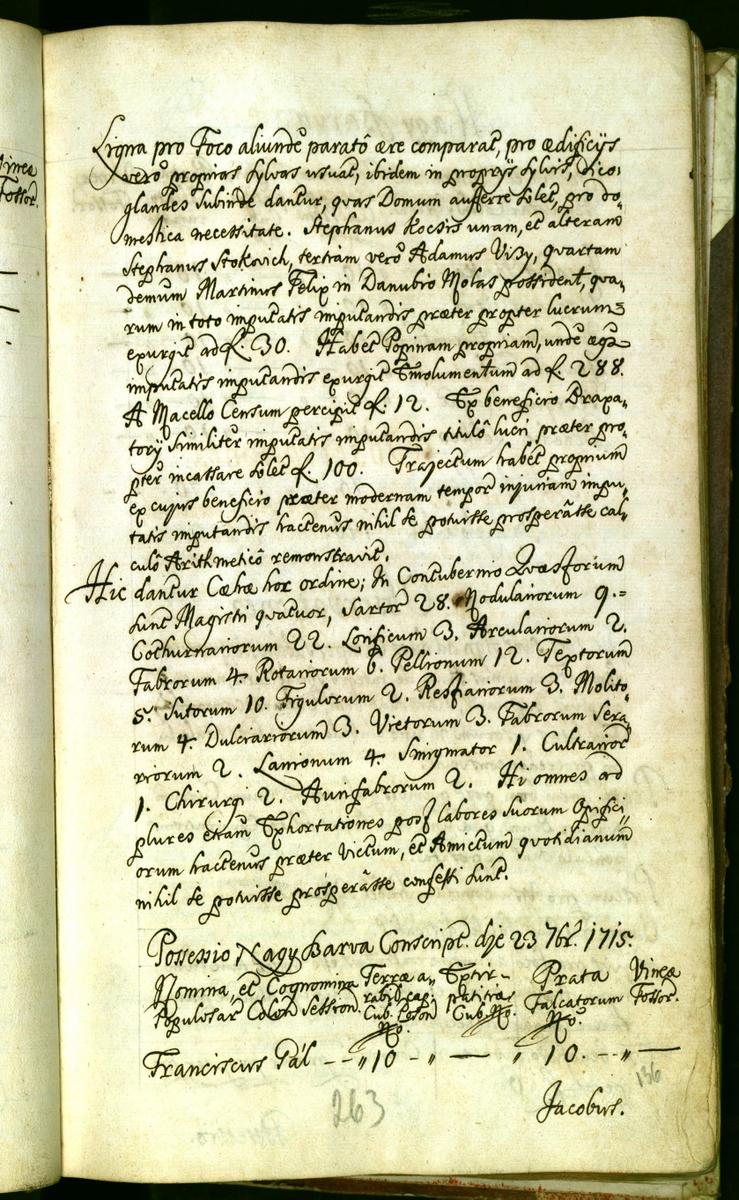 inea
Fossor.
Ligna pro Foco aliunde paratô ære comparat, pro ædificijs
verò proprias sylvas usuat, ibidem in proprijs sylvis, dico:
glandes subinde dantur, quas Domum aufferre solet, pro do-
mestica necessitate. Stephanus Kocsis unam, et alteram
Stephanus Stokovich, tertiam verò Adamus Vizy, quartam
demum Martinus Felix in Danubio Molas possident, qua-
rum in toto imputatis imputandis præter propter lucrum
expurgit ad f. 30. Habet Popinam propriam, unde æque
imputatis imputandis expurgit Emolumentum ad f. 288.
A Macello Censum percipit f. 12. Ex beneficio Braxa-
torij similiter imputatis imputandis titulô lucri præter pro-
pter incassare solet f. 100. Trajectum habet proprium
ex cujus beneficio præter modernam tempor. injuriam impu-
tatis imputandis hactenus nihil se potuisse prosperâsse cal-
culô Arithmeticô remonstravit.
Hic dantur Cæhæ hoc ordine; In Contubernio Quæstorum
sunt Magistri quatuor, Sartor. 28. Nodulariorum 9.=
Cothurnariorum 22. Lorificum 3. Arculariorum 2.
Fabrorum 4. Rotariorum 6. Pellionum 12. Textorum
5. Sutorum 10. Figulorum 2. Restiariorum 3. Molito-
rum 4. Dulciariorum 3. Vietorum 3. Fabrorum Sera-
riorum 2. Lanionum 4. Smigmator 1. Cultrarior
1. Chirurgi 2. Aurifabrorum 2. Hi omnes ad
plures etiam Exhortationes post labores suorum Opifici-
orum hactenus præter Victum, et Amictum quotidianum
nihil se potuisse prosperâsse confessi sunt.
Possessio Nagy Barva Conscript. die 23 7br. 1715.
Nomina, et Cognomina Terræ a- Extir- Prata Vineæ
Populosar. Colon. Session. rabil. cap. patitiæ Falcatorum Fossor.
Cub. Poson Cub. No. No.
No.
Franciscus Pál -- " 10 - " — " 10. -- " —
136
263
Jacobus.